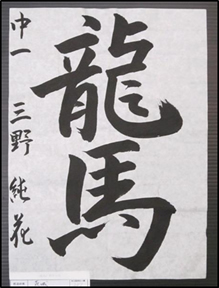 龍馬
中一 三野 純花